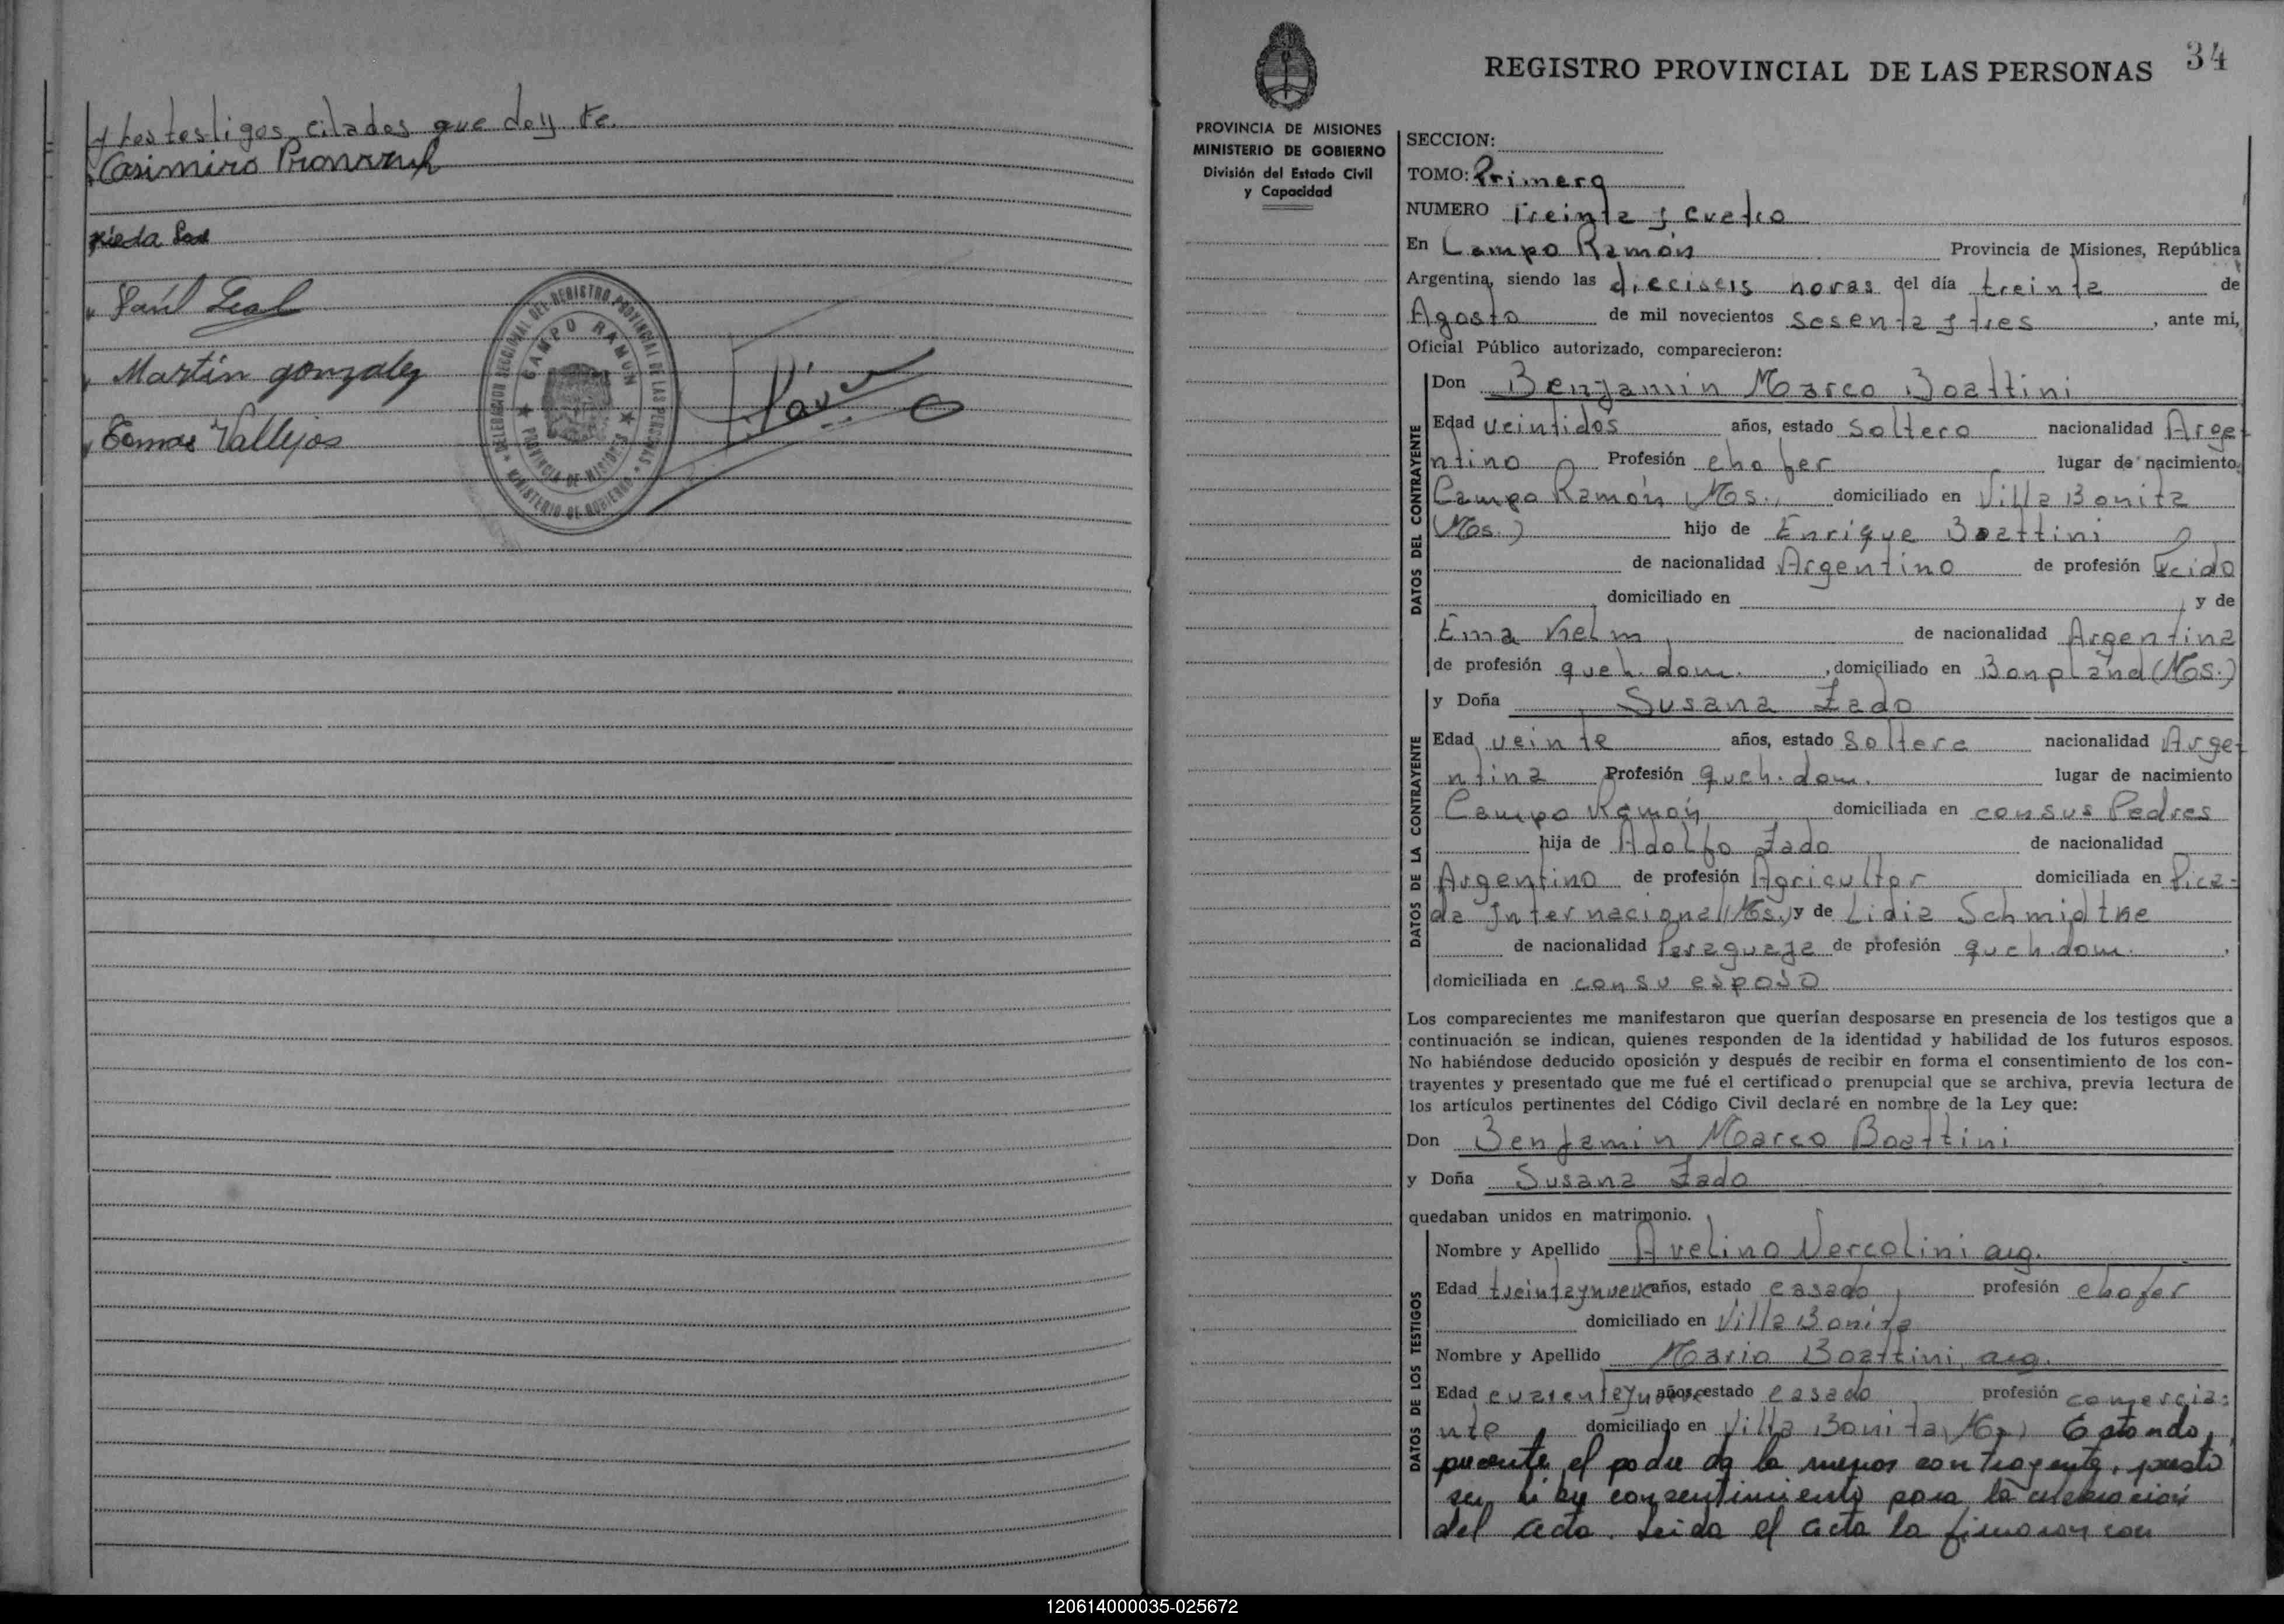 y los testigos citados que doy fe.
Casimiro
Saúl Leal
Martín gonzalez
Tomas Vallejos
DELEGACION SECCIONAL DEL REGISTRO PROVINCIAL DE LAS PERSONAS
MINISTERIO DE GOBIERNO
CAMPO RAMON
PROVINCIA DE MISIONES
34
REGISTRO PROVINCIAL DE LAS PERSONAS
PROVINCIA DE MISIONES
MINISTERIO DE GOBIERNO
División del Estado Civil
y Capacidad
SECCION:
TOMO: Primero
NUMERO Treinta y cuatro
En Campo Ramón Provincia de Misiones, República
Argentina, siendo las dieciseis horas del día treinta de
Agosto de mil novecientos sesenta y tres, ante mi,
Oficial Público autorizado, comparecieron:
DATOS DEL CONTRAYENTE
Don Benjamin Marco Boattini
Edad veintidos años, estado soltero nacionalidad Arge-
ntino Profesión chofer lugar de nacimiento
Campo Ramón (Mos.) domiciliado en Villa Bonita
(Mos.) hijo de Enrique Boattini
de nacionalidad Argentino de profesión
domiciliado en , y de
Ema Kelm de nacionalidad Argentina
de profesión queh. dom. , domiciliado en Bonpland (Mos.)
DATOS DE LA CONTRAYENTE
y Doña Susana Zado
Edad veinte años, estado soltera nacionalidad Arge-
ntina Profesión queh. dom. lugar de nacimiento
Campo Ramón domiciliada en con sus Padres
hija de Adolfo Zado de nacionalidad
Argentino de profesión Agricultor domiciliada en Pica-
da Internacional (Mos.) y de Lidia Schmidtke
de nacionalidad Paraguaya de profesión queh. dom. ,
domiciliada en con su esposo
Los comparecientes me manifestaron que querían desposarse en presencia de los testigos que a
continuación se indican, quienes responden de la identidad y habilidad de los futuros esposos.
No habiéndose deducido oposición y después de recibir en forma el consentimiento de los con-
trayentes y presentado que me fué el certificado prenupcial que se archiva, previa lectura de
los artículos pertinentes del Código Civil declaré en nombre de la Ley que:
Don Benjamin Marco Boattini
y Doña Susana Zado
quedaban unidos en matrimonio.
DATOS DE LOS TESTIGOS
Nombre y Apellido Avelino Vercolini arg.
Edad treinta y nueve años, estado casado profesión chofer
domiciliado en Villa Bonita
Nombre y Apellido Mario Boattini, arg.
Edad cuarenta y nueve años, estado casado profesión comercia-
nte domiciliado en Villa Bonita (Mos.) Estando
presente el padre de la menor contrayente, presto
su libre consentimiento para la celebración
del acto. Leida el acta la firmaron con
120614000035-025672